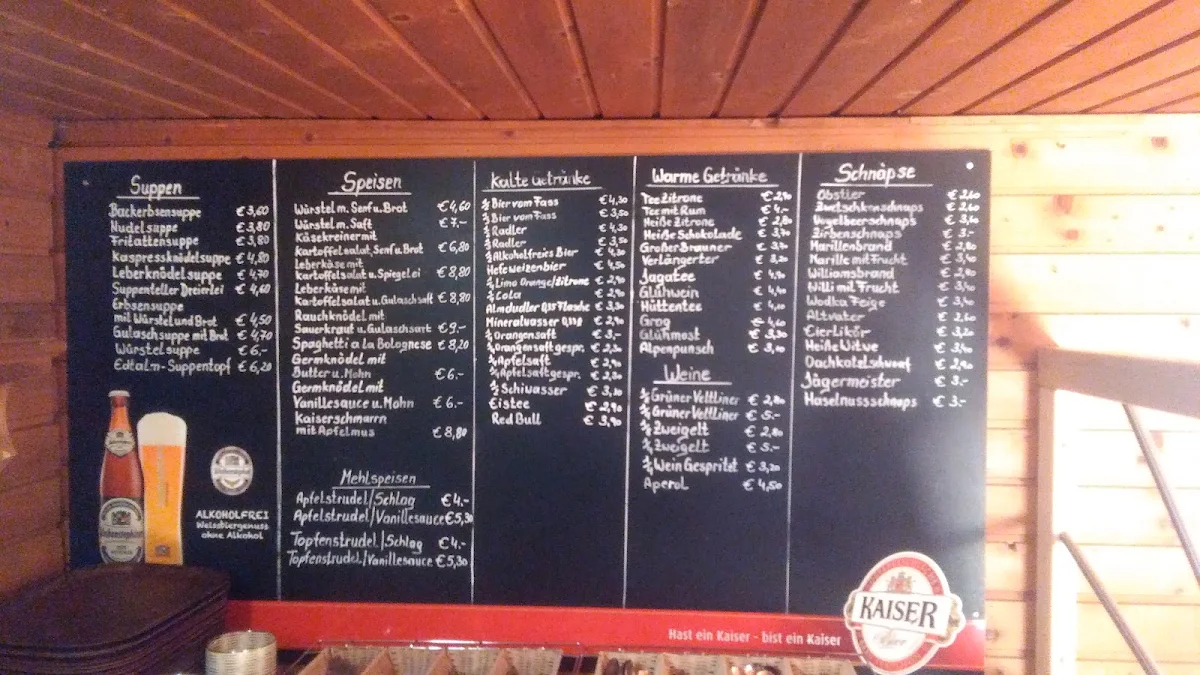 Suppen
Backerbsensuppe € 3,60
Nudelsuppe € 3,80
Fritattensuppe € 3,80
Kaspressknödelsuppe € 4,80
Leberknödelsuppe € 4,70
Suppenteller Dreierlei € 4,60
Erbsensuppe
mit Würstel und Brot € 4,50
Gulaschsuppe mit Brot € 4,70
Würstelsuppe € 6,-
Edtalm-Suppentopf € 6,20
ALKOHOLFREI
Weissbiergenuss
ohne Alkohol
Speisen
Würstel m. Senf u. Brot € 4,60
Würstel m. Saft € 7,-
Käsekreiner mit
Kartoffelsalat, Senf u. Brot € 6,80
Leberkäse mit
Kartoffelsalat u. Spiegelei € 8,80
Leberkäse mit
Kartoffelsalat u. Gulaschsaft € 8,80
Rauchknödel mit
Sauerkraut u. Gulaschsaft € 9,-
Spaghetti a la Bolognese € 8,20
Germknödel mit
Butter u. Mohn € 6.-
Germknödel mit
Vanillesauce u. Mohn € 6.-
Kaiserschmarrn
mit Apfelmus € 8,80
Mehlspeisen
Apfelstrudel/Schlag € 4.-
Apfelstrudel/Vanillesauce € 5,30
Topfenstrudel/Schlag € 4.-
Topfenstrudel/Vanillesauce € 5,30
Kalte Getränke
Bier vom Fass € 4,30
Bier vom Fass € 3,50
Radler € 4,30
Radler € 3,50
Alkoholfreies Bier € 4,30
Hefeweizenbier € 4,50
Limo Orange/Zitrone € 2,90
Cola € 2,90
Almdudler 0,35 Flasche € 3,30
Mineralwasser € 2,90
Orangensaft € 3,-
Orangensaft gespr.
Apfelsaft
Apfelsaft gespr.
Schiwasser
Eistee € 2,90
Red Bull € 3,90
Warme Getränke
Tee Zitrone € 2,90
Tee mit Rum € 4,-
Heiße Zitrone € 2,80
Heiße Schokolade € 3,70
Großer Brauner € 3,70
Verlängerter € 3,20
Jagatee € 4,90
Glühwein € 4,40
Hüttentee € 4,40
Grog € 4,60
Glühmost € 3,30
Alpenpunsch
Weine
Grüner Veltliner € 2,80
Grüner Veltliner € 5.-
Zweigelt € 2,80
Zweigelt € 5.-
Wein Gespritzt € 3,20
Aperol € 4,50
Schnäpse
Obstler € 2,60
Zwetschkenschnaps € 2,60
Vogelbeerschnaps
Zirbenschnaps € 3.-
Marillenbrand € 2,80
Marille mit Frucht € 3,40
Williamsbrand € 2,80
Willi mit Frucht € 3,40
Wodka Feige € 3,40
Altvater € 2,60
Eierlikör € 3,20
Heiße Witwe € 3,40
Dachkatzlschwoaf € 2,90
Jägermeister € 3.-
Haselnussschnaps € 3.-
Hast ein Kaiser - bist ein Kaiser
KAISER
Bier